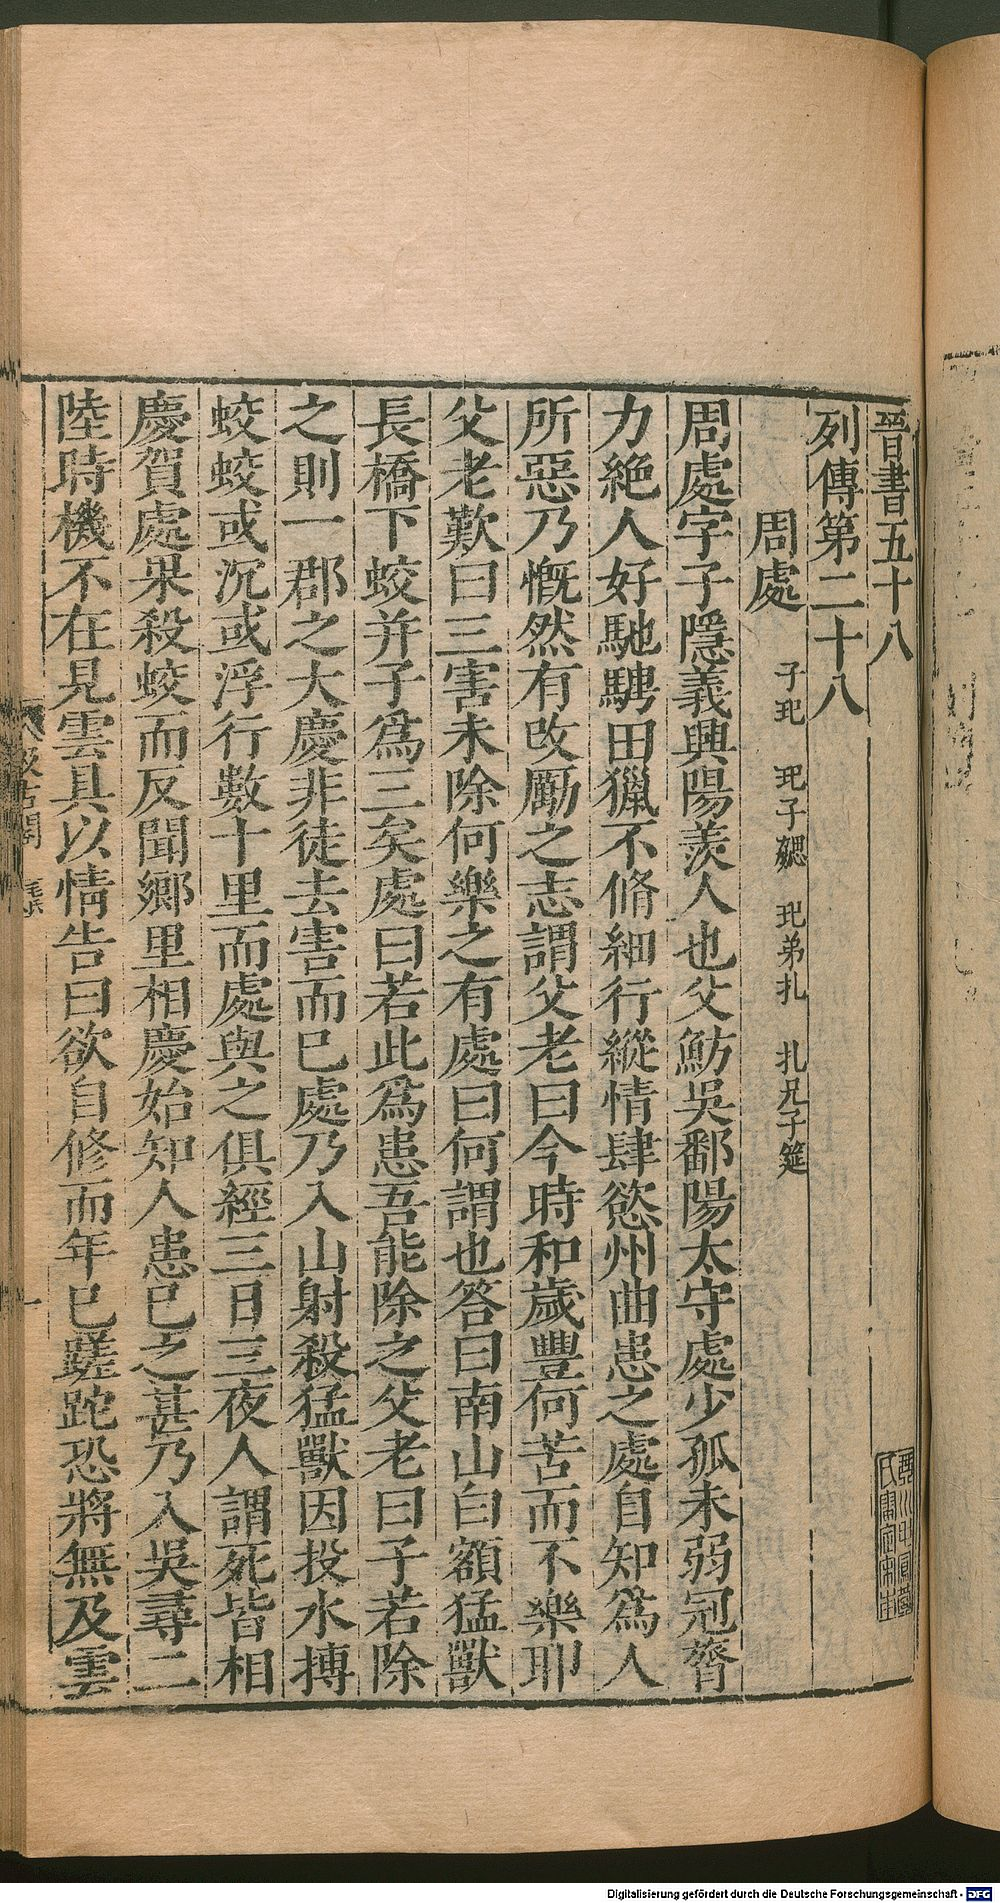 晉書五十八
列傳第二十八
周處 子玘 玘子勰 玘弟札 札兄子筵
周處字子隱義興陽羨人也父魴吳鄱陽太守處少孤未弱冠膂
力絕人好馳騁田獵不脩細行縱情肆慾州曲患之處自知爲人
所惡乃慨然有改勵之志謂父老曰今時和歲豐何苦而不樂耶
父老歎曰三害未除何樂之有處曰何謂也答曰南山白額猛獸
長橋下蛟并子爲三矣處曰若此爲患吾能除之父老曰子若除
之則一郡之大慶非徒去害而已處乃入山射殺猛獸因投水搏
蛟蛟或沉或浮行數十里而處與之俱經三日三夜人謂死皆相
慶賀處果殺蛟而反聞鄉里相慶始知人患已之甚乃入吳尋二
陸時機不在見雲具以情告曰欲自修而年已蹉跎恐將無及雲
汲古閣
毛氏
一
Digitalisierung gefördert durch die Deutsche Forschungsgemeinschaft - DFG